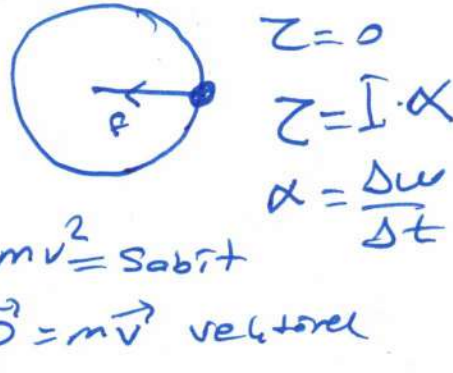 τ = 0
F
τ = I·α
α = Δω/Δt
mv² = Sabit
P⃗ = mv⃗ vektörel